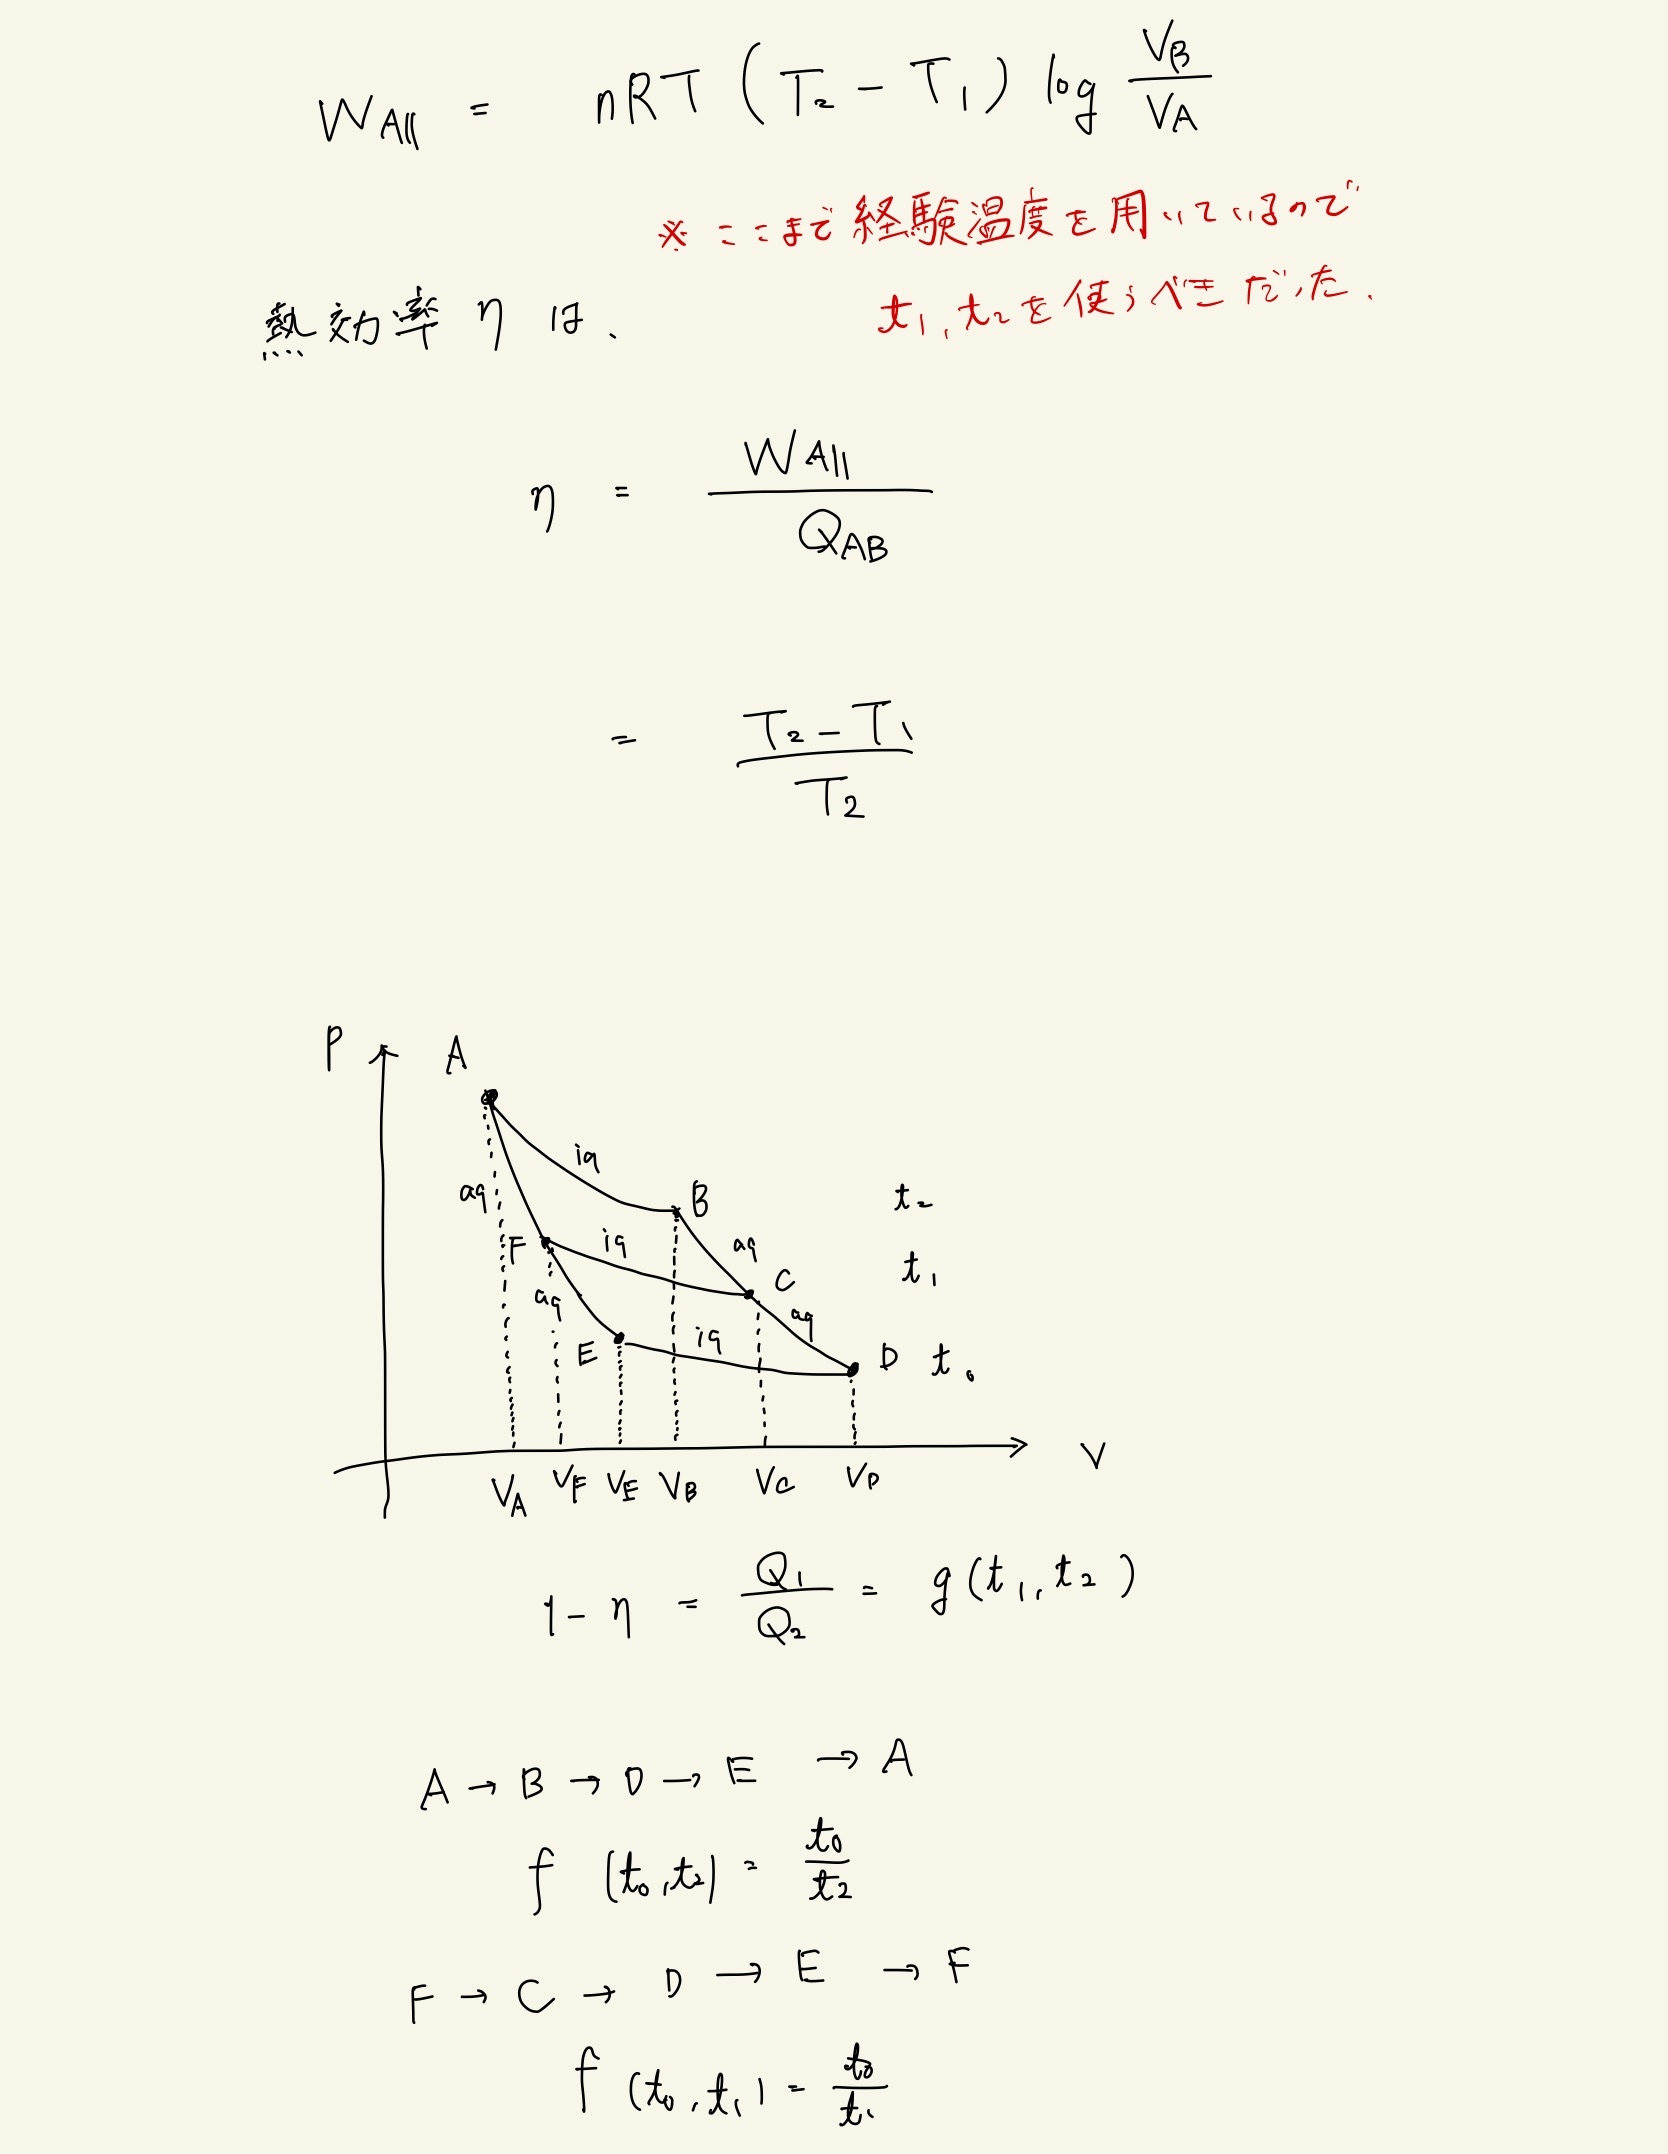 W_All = nRT (T₂ - T₁) log V_B/V_A
※ ここまで経験温度を用いているので
t₁, t₂を使うべきだった.
熱効率 η は、
η = W_All/Q_AB
= T₂-T₁/T₂
P
A
iq
aq
B
t₂
F
iq
aq
C
t₁
aq
aq
E
iq
D
t₀
V
V_A V_F V_E V_B V_C V_D
1 - η = Q₁/Q₂ = g(t₁, t₂)
A → B → D → E → A
f (t₀, t₂) = t₀/t₂
F → C → D → E → F
f (t₀, t₁) = t₀/t₁